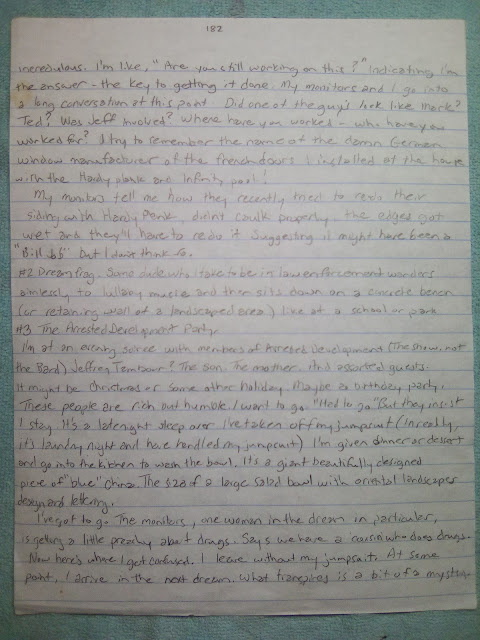 182
incredulous. I'm like, "Are you still working on this?" Indicating I'm
the answer - the key to getting it done. My monitors and I go into
a long conversation at this point. Did one of the guys look like Mark?
Ted? Was Jeff involved? Where have you worked - who have you
worked for? I try to remember the name of the damn German
window manufacturer of the french doors I installed at the house
with the Hardy plank and Infinity pool!
My monitors tell me how they recently tried to redo their
siding with Hardy Plank, didn't caulk properly - the edges got
wet and they'll have to redo it. Suggesting it might have been a
"Bill job" But I don't think so.
#2 Dreamfrag. Some dude who I take to be in law enforcement wanders
aimlessly to lullaby music and then sits down on a concrete bench
(or retaining wall of a landscaped area) like at a school or park
#3 The Arrested Development Party.
I'm at an evening soiree with members of Arrested Development (The show, not
the Band) Jeffrey Tambour? The son. The mother. And assorted guests.
It might be Christmas or some other holiday. Maybe a birthday party.
These people are rich but humble. I want to go. "Had to go" But they insist
I stay. It's a late night sleep over. I've taken off my jumpsuit (In reality
it's laundry night and have handled my jumpsuit) I'm given dinner or dessert
and go into the kitchen to wash the bowl. It's a giant beautifully designed
piece of "blue" china. The size of a large salad bowl with oriental landscapes
design and lettering.
I've got to go. The monitors, one woman in the dream in particular,
is getting a little preachy about drugs. Says we have a cousin who does drugs.
Now here's where I get confused. I leave without my jumpsuit. At some
point, I arrive in the next dream. What transpires is a bit of a mystery.